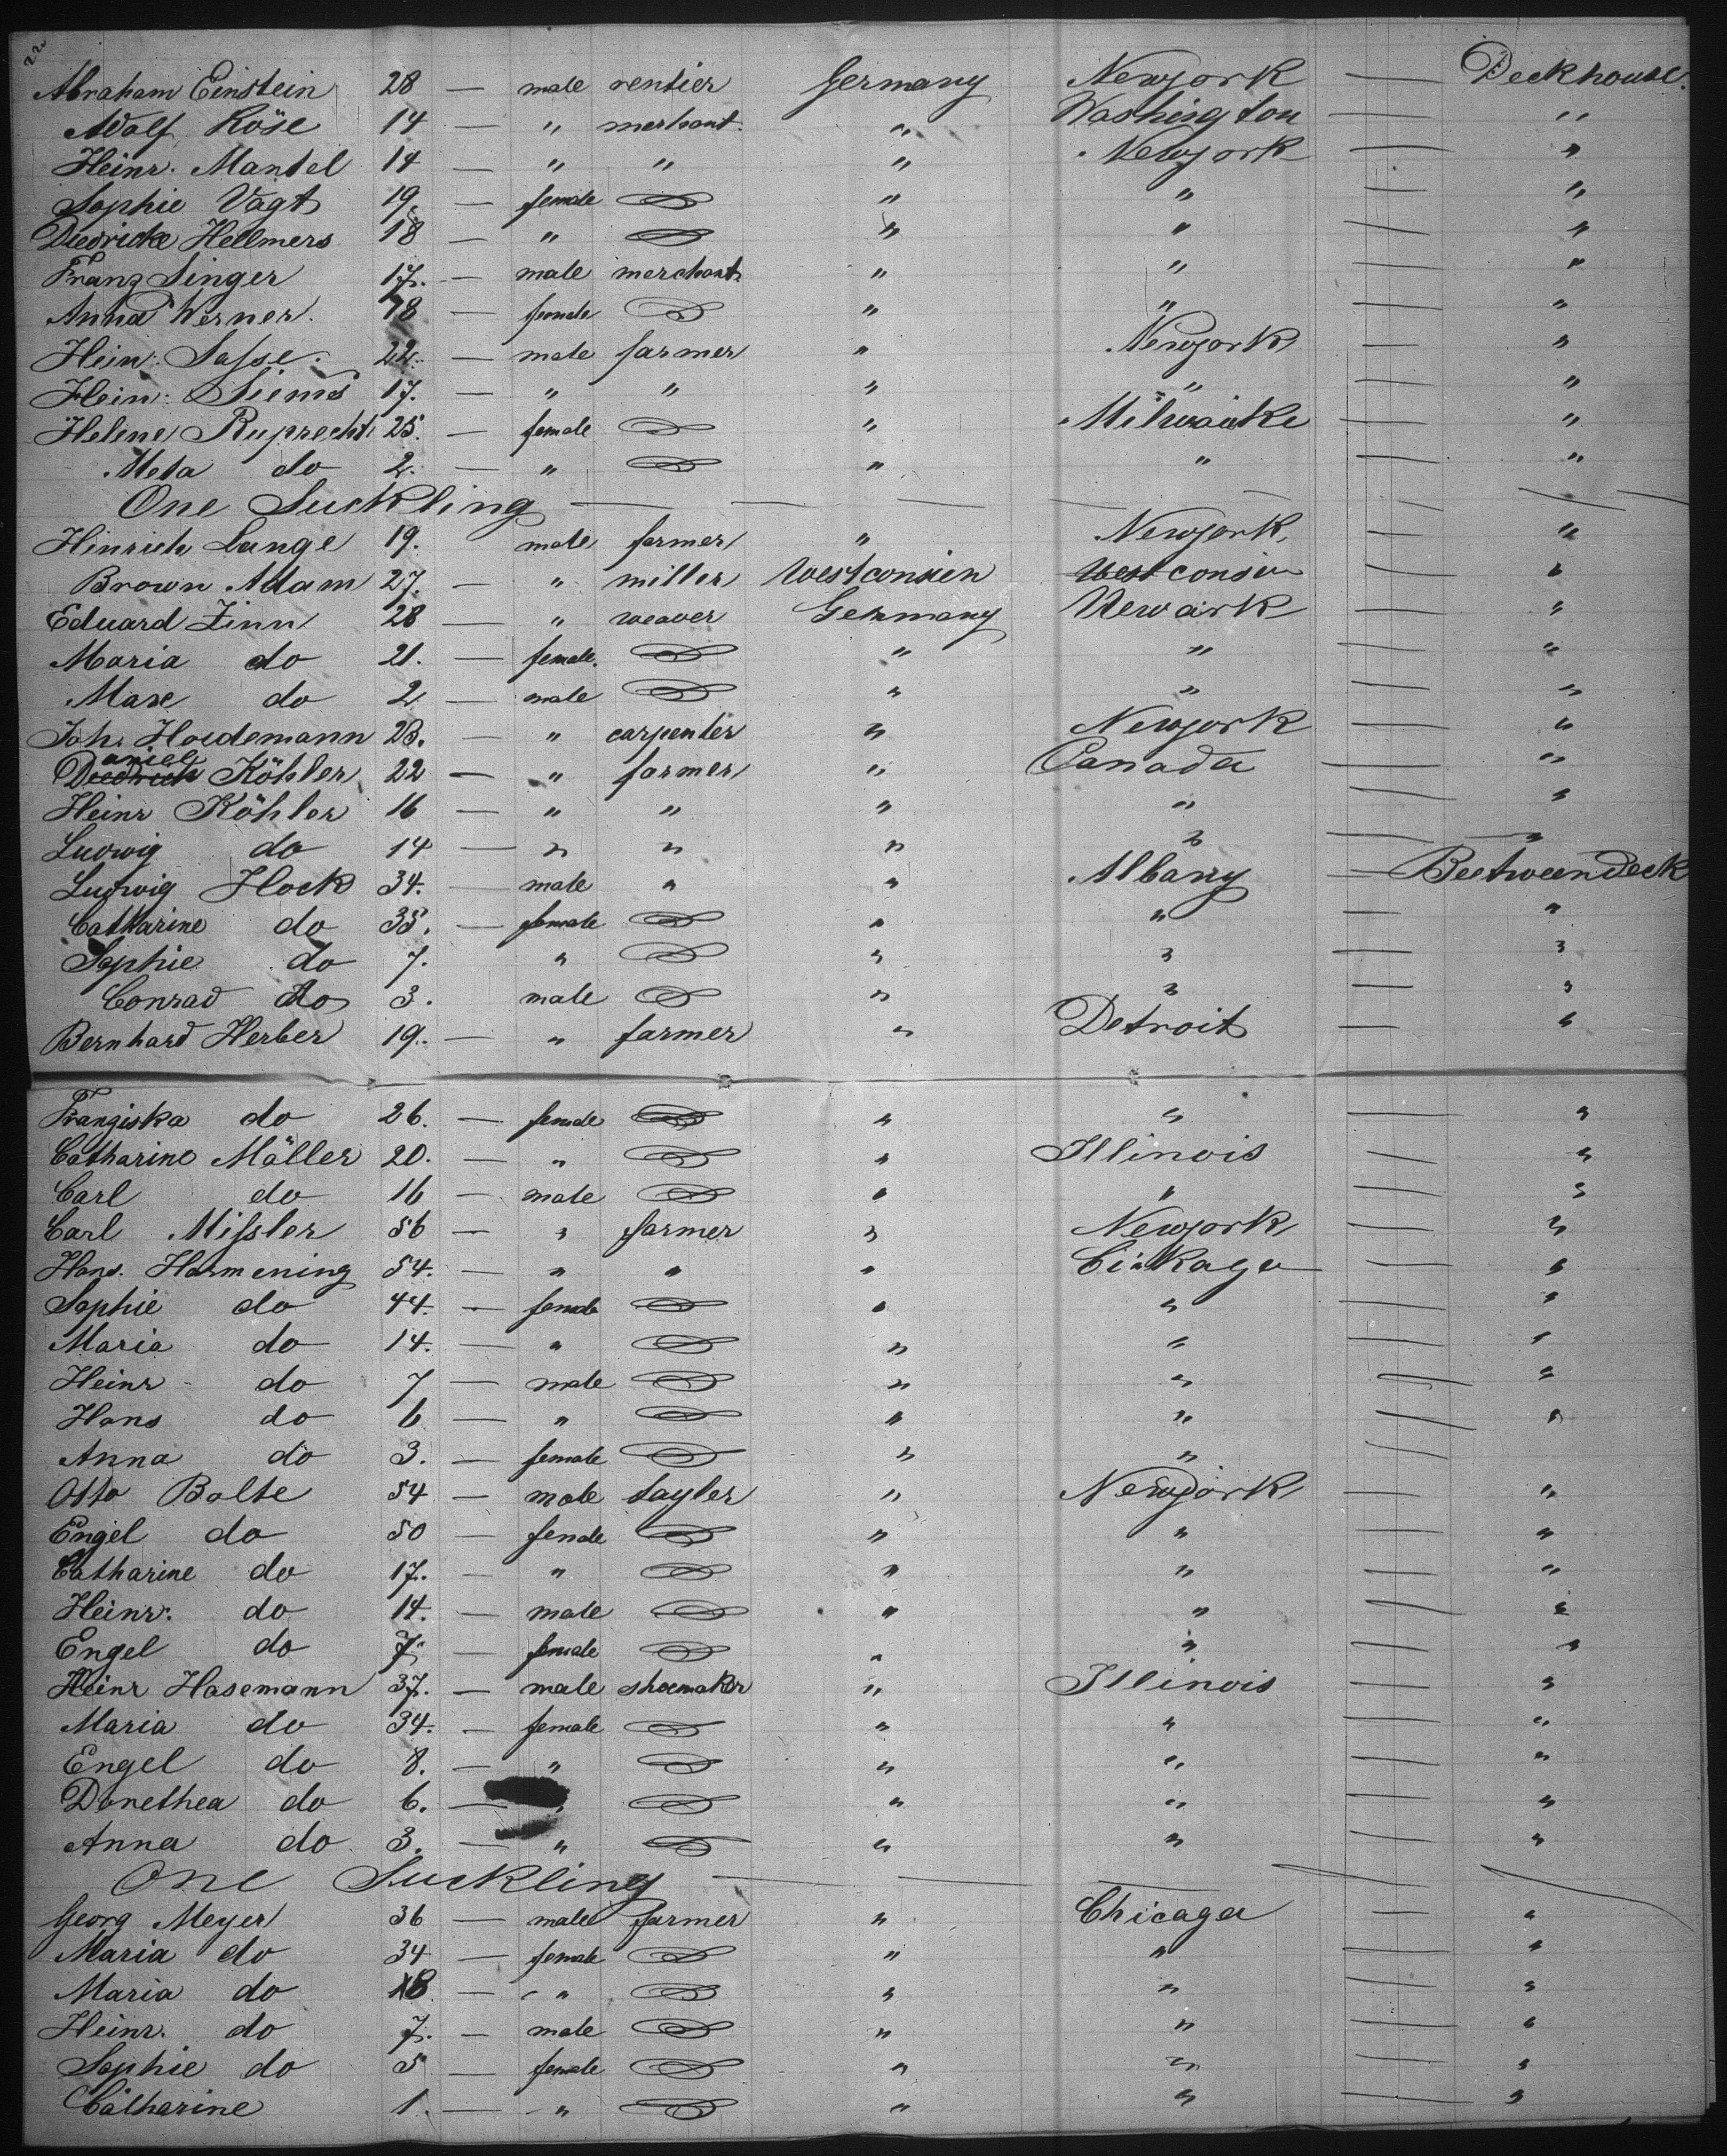 22
Abraham Einstein 28 — male rentier Germany Newyork — Deckhouse.
Adolf Köse 14 — " merhant. " Washington — "
Heinr. Mantel 14 — " " " Newyork — "
Sophie Vagt 19. — female " " — "
Diedricke Hellmers 18 — " " " — "
Franz Singer 17. — male merchant " " — "
Anna Werner. 18 — female " " — "
Hein: Sasse. 22. — male farmer " Newyork — "
Hein: Siems 17. — " " " " — "
Helene Ruprecht 25. — female " Milwauke — "
Meta do 2. — " " " — "
One Suckling — — — — — —
Hinrich Lange 19. male farmer " Newyork, — "
Brown Adam 27. — " miller Westconsien Westconsin — "
Eduard Zinn 28 — " weaver Gehmany Newark — "
Maria do 21. — female. " " — "
Max do 2 — male " " — "
Joh. Hoedemann 23. — " carpenter " Newyork — "
Daniel Köhler 22 — " farmer " Canada — "
Heinr Köhler 16 — " " " " — "
Ludwig do 14 — " " " " — "
Ludwig Hock 34. — male " " Albany — Beetweendeck
Catharine do 35. — female " " — "
Sophie do 7. " " " — "
Conrad do 3. male " " — "
Bernhard Herber 19. — " farmer " Detroit — "
Franziska do 26. — female " " — "
Catharine Möller 20. — " " Illinois — "
Carl do 16 — male " " — "
Carl Missler 56 — " farmer " Newyork — "
Hans. Harmening 54. — " " " Cickago — "
Sophie do 44. — female " " — "
Maria do 14. — " " " — "
Heinr do 7 — male " " — "
Hans do 6 — " " " — "
Anna do 3. — female " " —
Otto Bolte 54 — male tayler " Newyork — "
Engel do 50 — female " " — "
Catharine do 17. — " " " — "
Heinr: do 14. — male " " — "
Engel do 7. — female " " — "
Heinr Hasemann 37. — male shoemaker " Illinois — "
Maria do 34. — female " " — "
Engel do 8. — " " " — "
Dorethea do 6. — " " " — "
Anna do 3. — " " " — "
One Suckling — — — — —
Georg Meyer 36 — male farmer " Chicago — "
Maria do 34 — female " " — "
Maria do 18 — " " " — "
Heinr. do 7. — male " " — "
Sophie do 5 — female " " — "
Catharine 1. — " " " — "